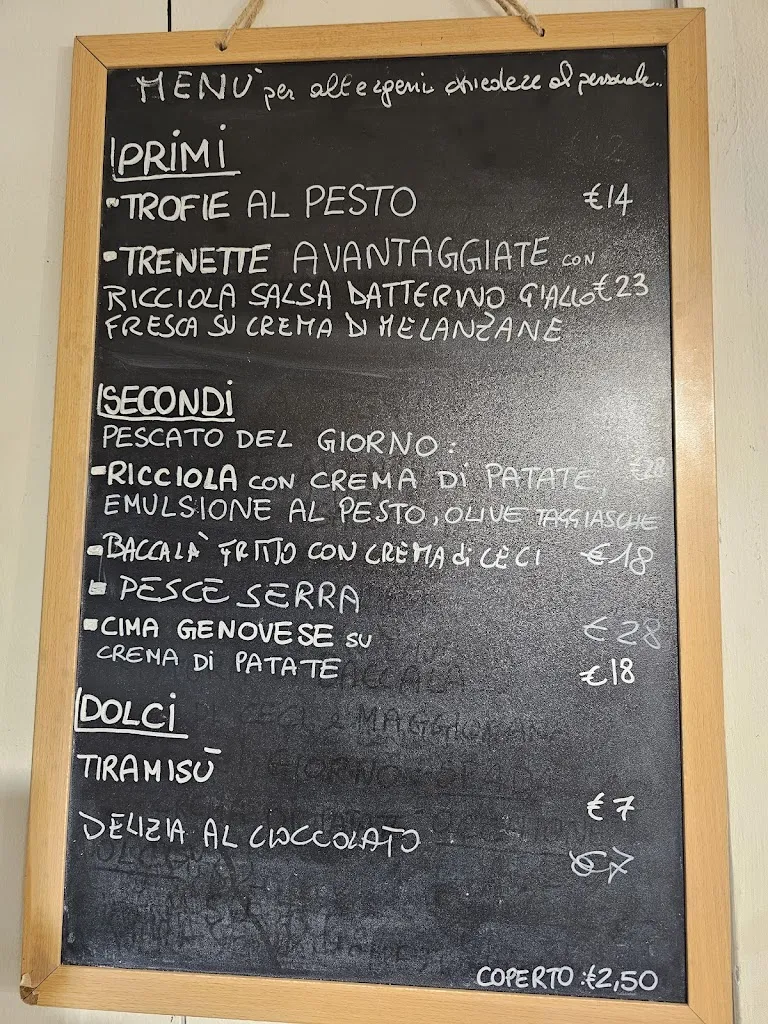 MENU' per allergeni chiedere al personale..
PRIMI
TROFIE AL PESTO €14
TRENETTE AVANTAGGIATE CON
RICCIOLA SALSA DATTERINO GIALLO €23
FRESCA SU CREMA DI MELANZANE
SECONDI
PESCATO DEL GIORNO:
RICCIOLA CON CREMA DI PATATE, €28
EMULSIONE AL PESTO, OLIVE TAGGIASCHE
BACCALA' FRITTO CON CREMA di CECI €18
PESCE SERRA
CIMA GENOVESE SU €28
CREMA DI PATATE €18
DOLCI
TIRAMISÙ
€7
DELIZIA AL CIOCCOLATO
€7
COPERTO: €2,50